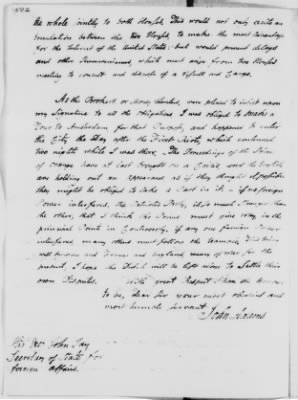 the whole jointly to both Houses. This would not only excite an
emulation between the two Houses, to make the most advantage
for the Interest of the United States; but would prevent delays
and other Inconveniences, which must arise from two Houses
meeting to consult and
As the Brokers or Money lenders, were pleased to insist upon
my Signature to all the Obligations I was obliged to make a
Tour to Amsterdam for that Purpose, and happened to enter
the City the Day after the first Riots, which continued
two nights while I was there. The Proceedings of the Prince
of orange have at last brought on a Crisis, and the English
are holding out an appearance as if they thought of
they might be obliged to take a Part in it. if no foreign
Power interferes, the Patriotic Party, is so much stronger than
the other, that I think the Prince must give way in the
principal Point in Controversy. if any one foreign Power
interferes many others must follow the
well known and France and England mean of war for the
present, I hope the Dutch will be left alone to settle their
own Disputes. With great Respect I have the Honour
to be, dear Sir your most obedient and
most humble Servant
John Adams
His Exc. John Jay
Secretary of State for
foreign Affairs.